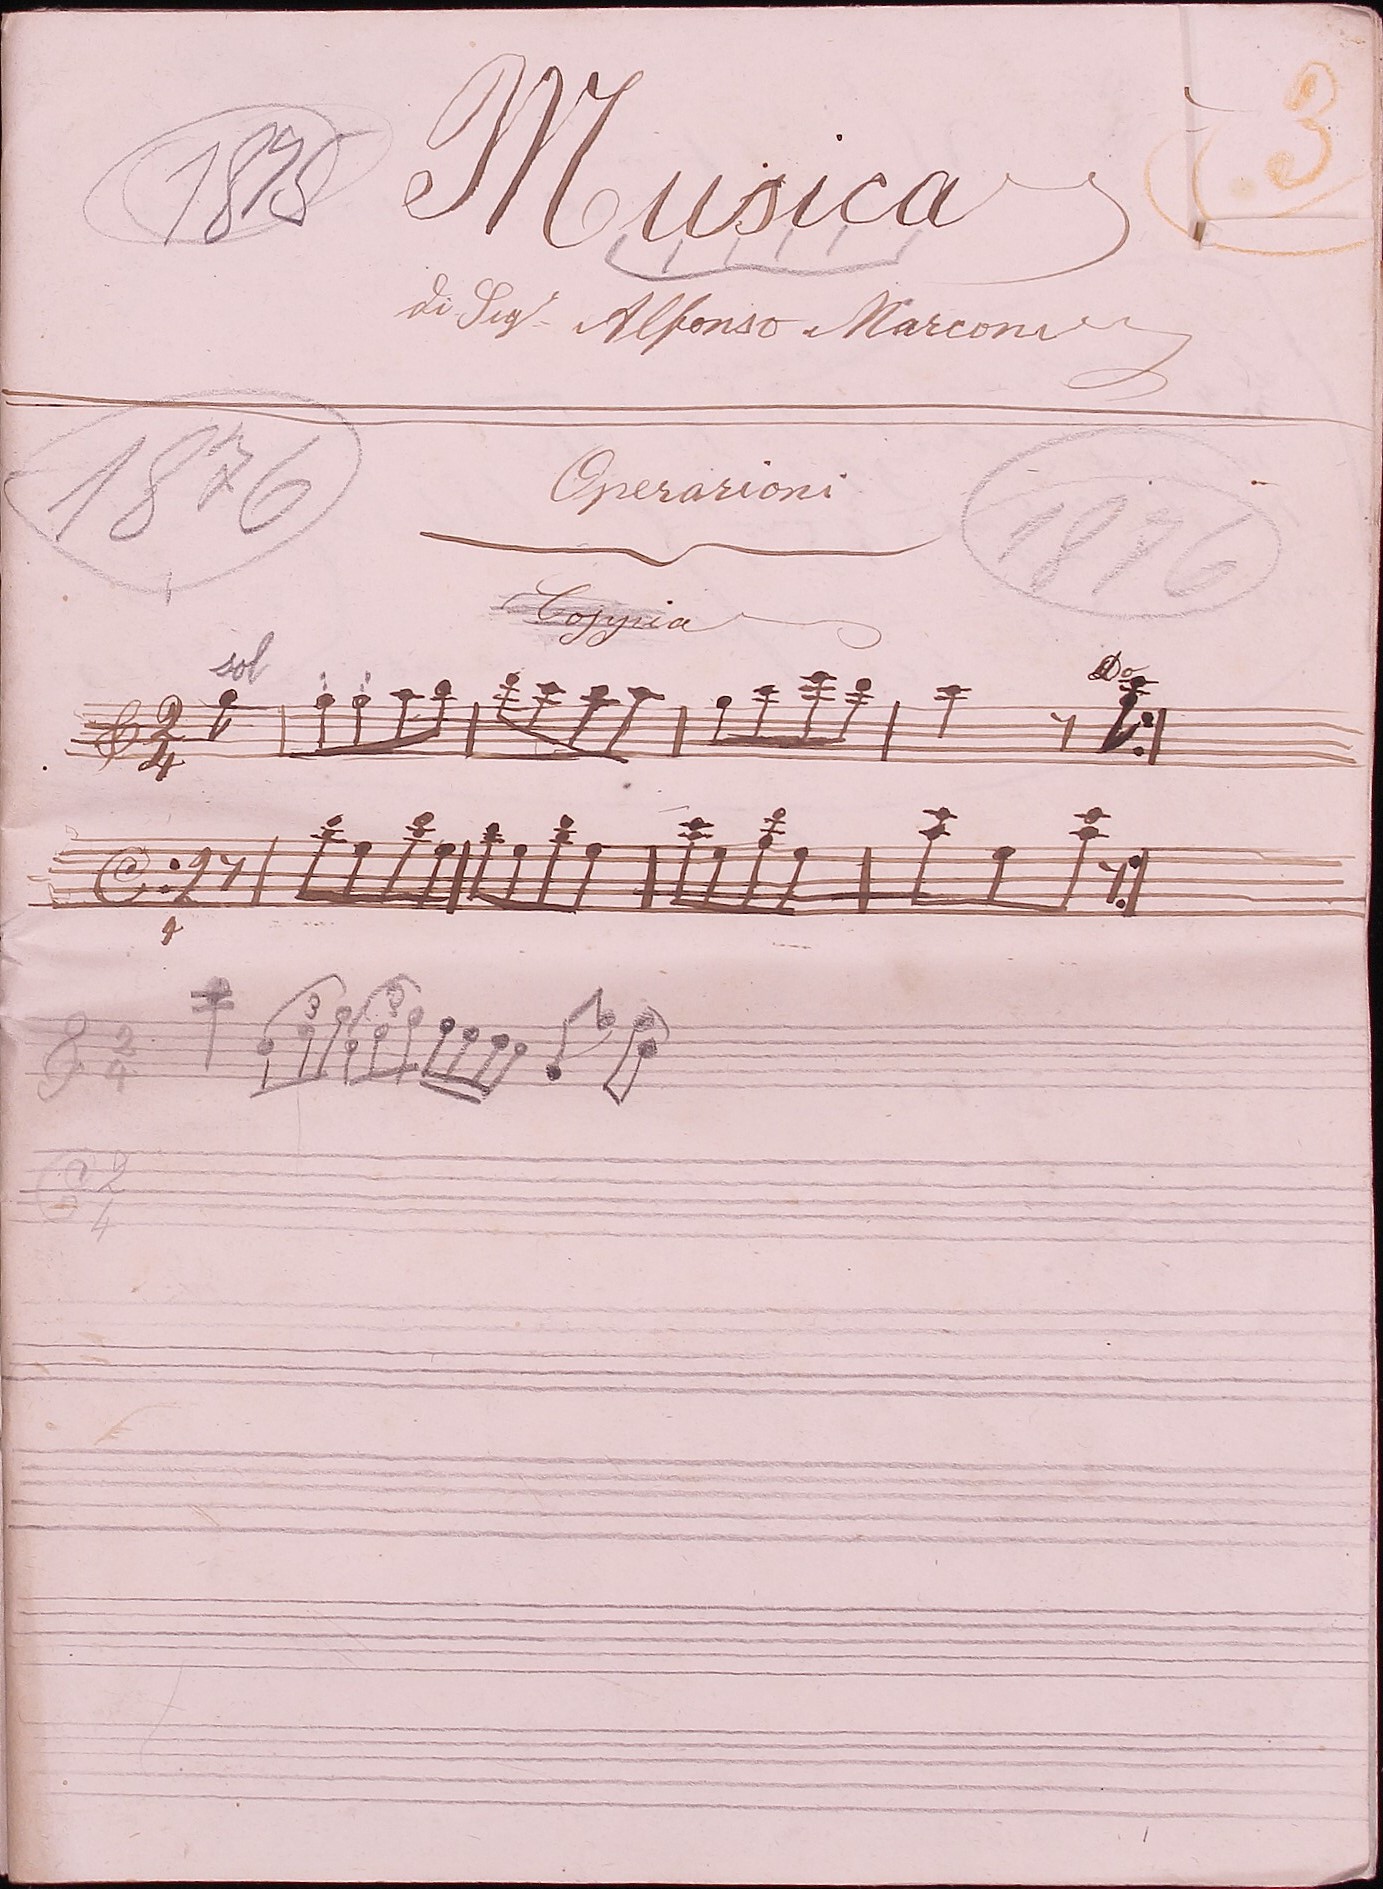 1875 Musica 3
di Sigr. Alfonso Marconi
1876 Operazioni 1876
Coppia
sol Do
2
4
2
3 3
2
4
2
4